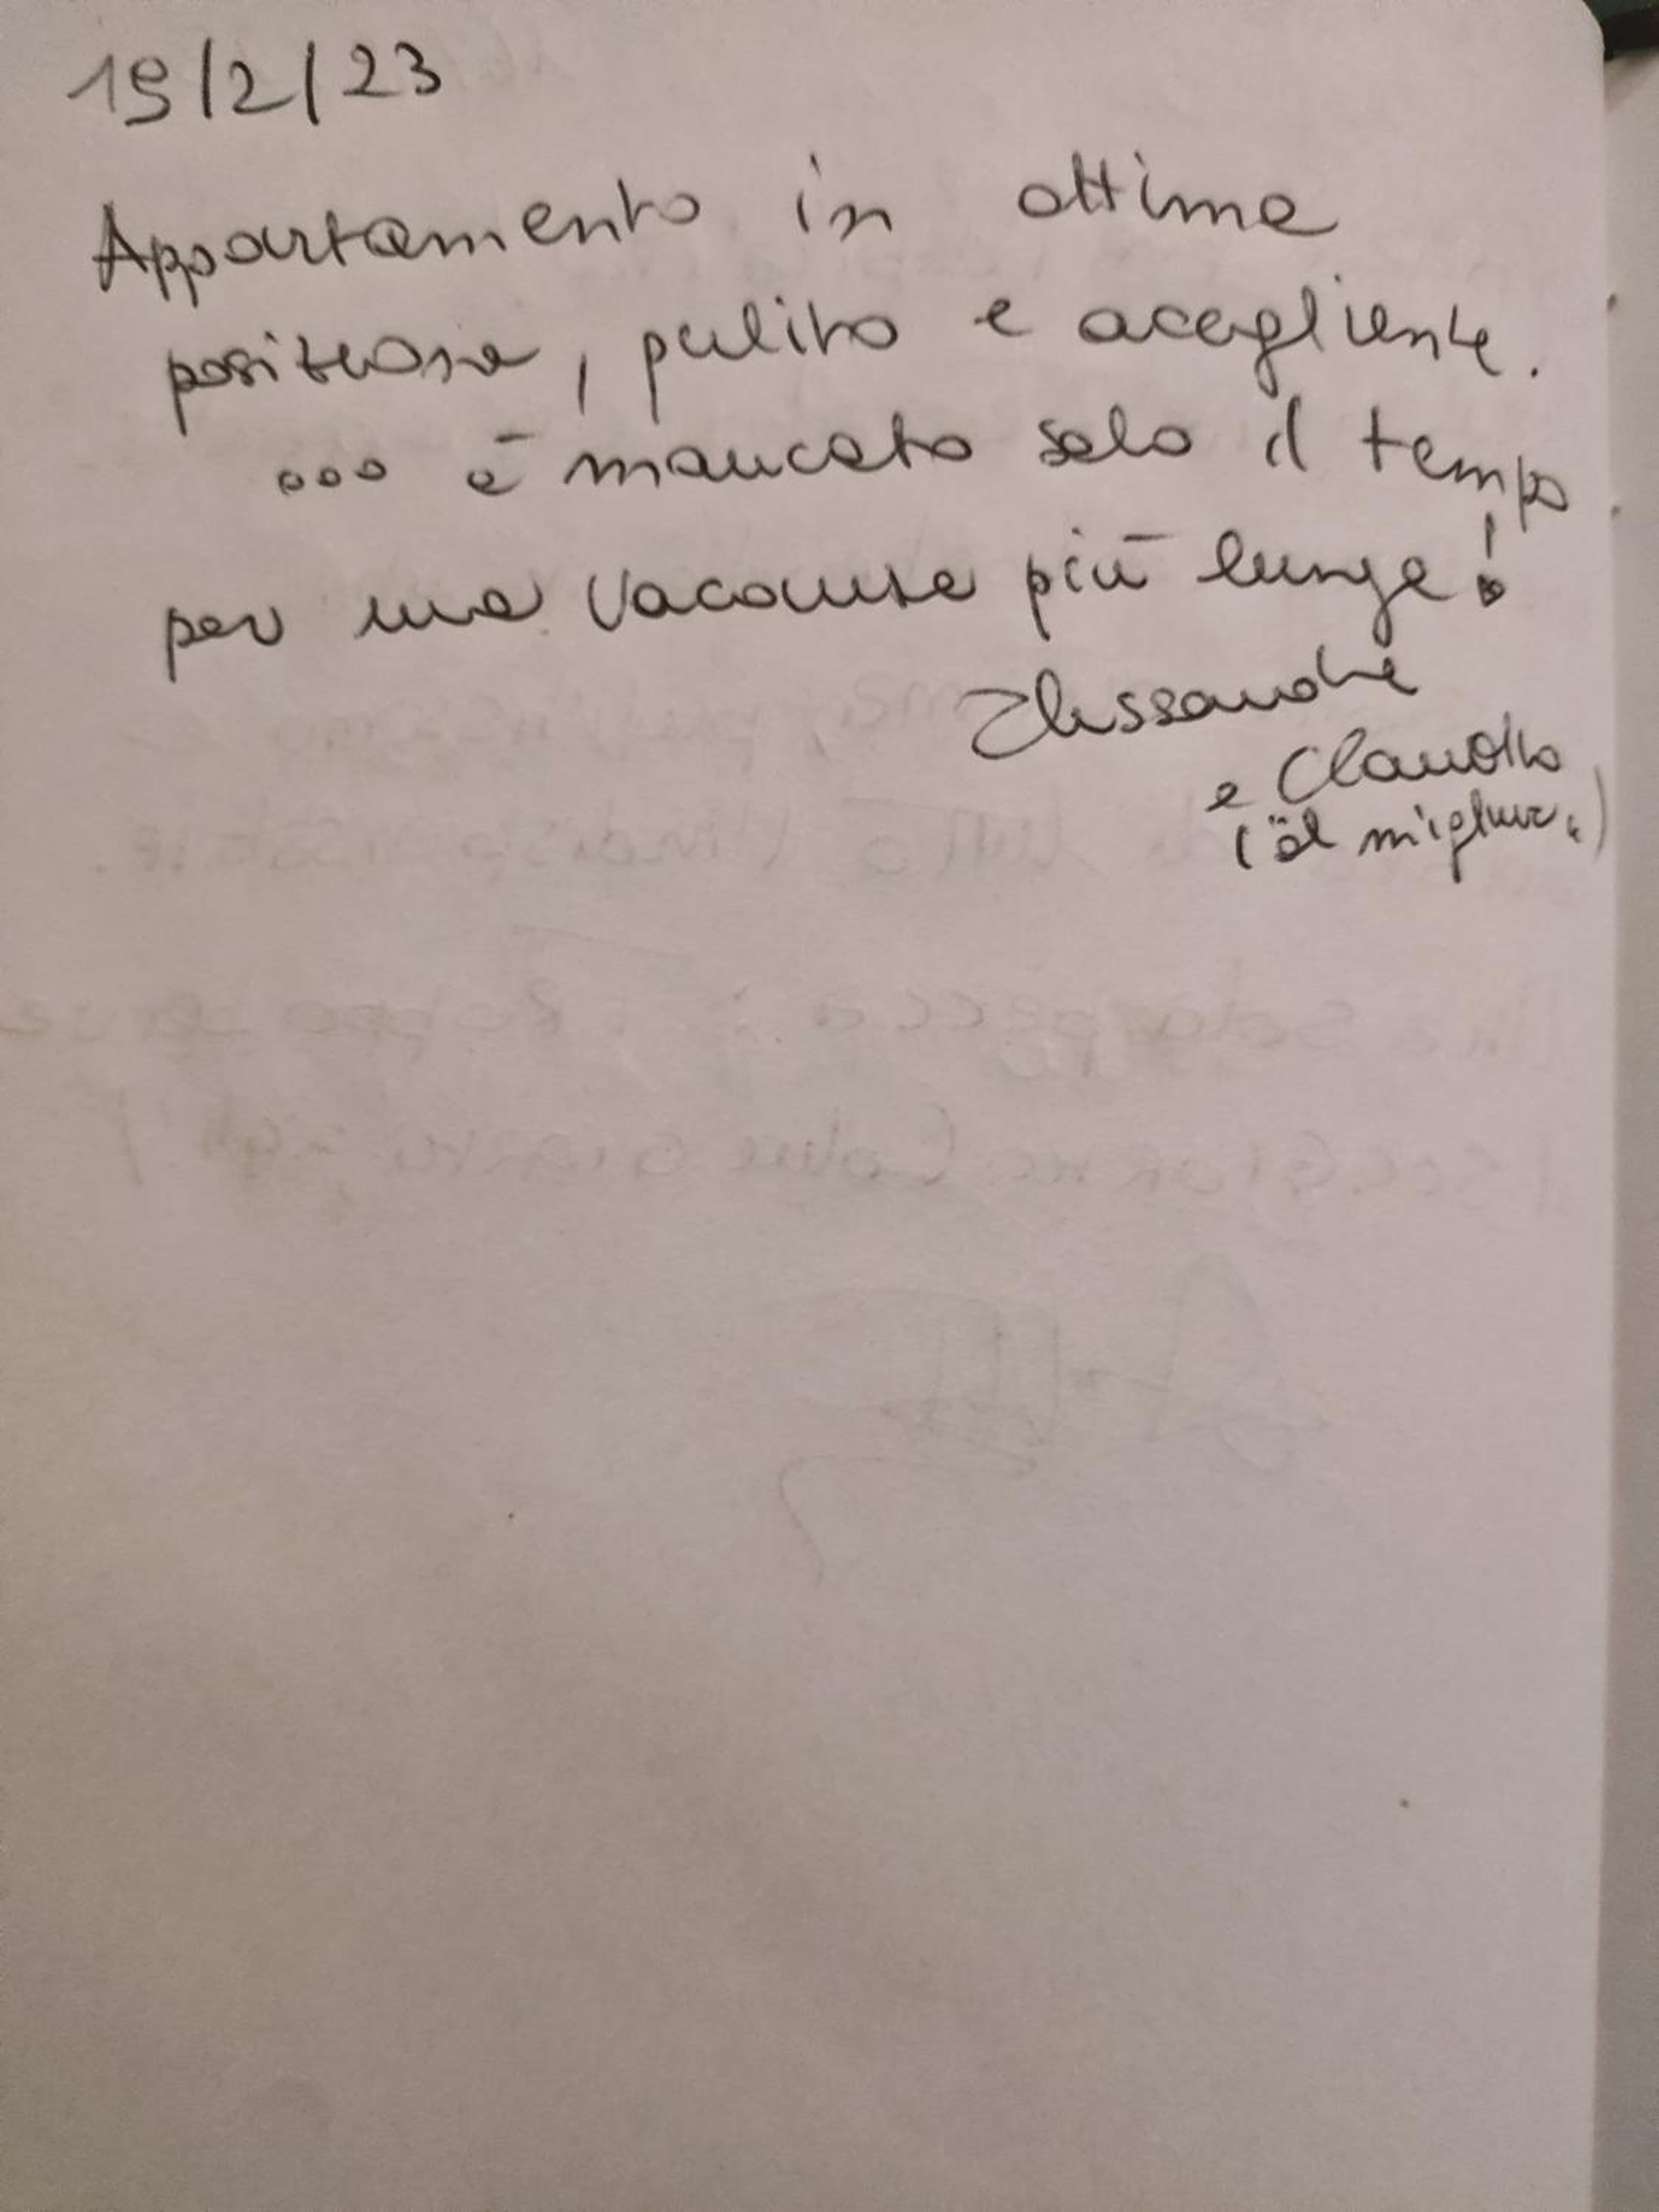 19/2/23
Appartamento in ottima
posizione, pulito e accogliente.
... è mancato solo il tempo
per una vacanza più lunga!
Alessandra
e Claudio